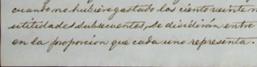 cuando me hubiere gastado los ciento veinte m
utilidades subsecuentes, se dividirán entre
en la proporcion que cada uno representa.